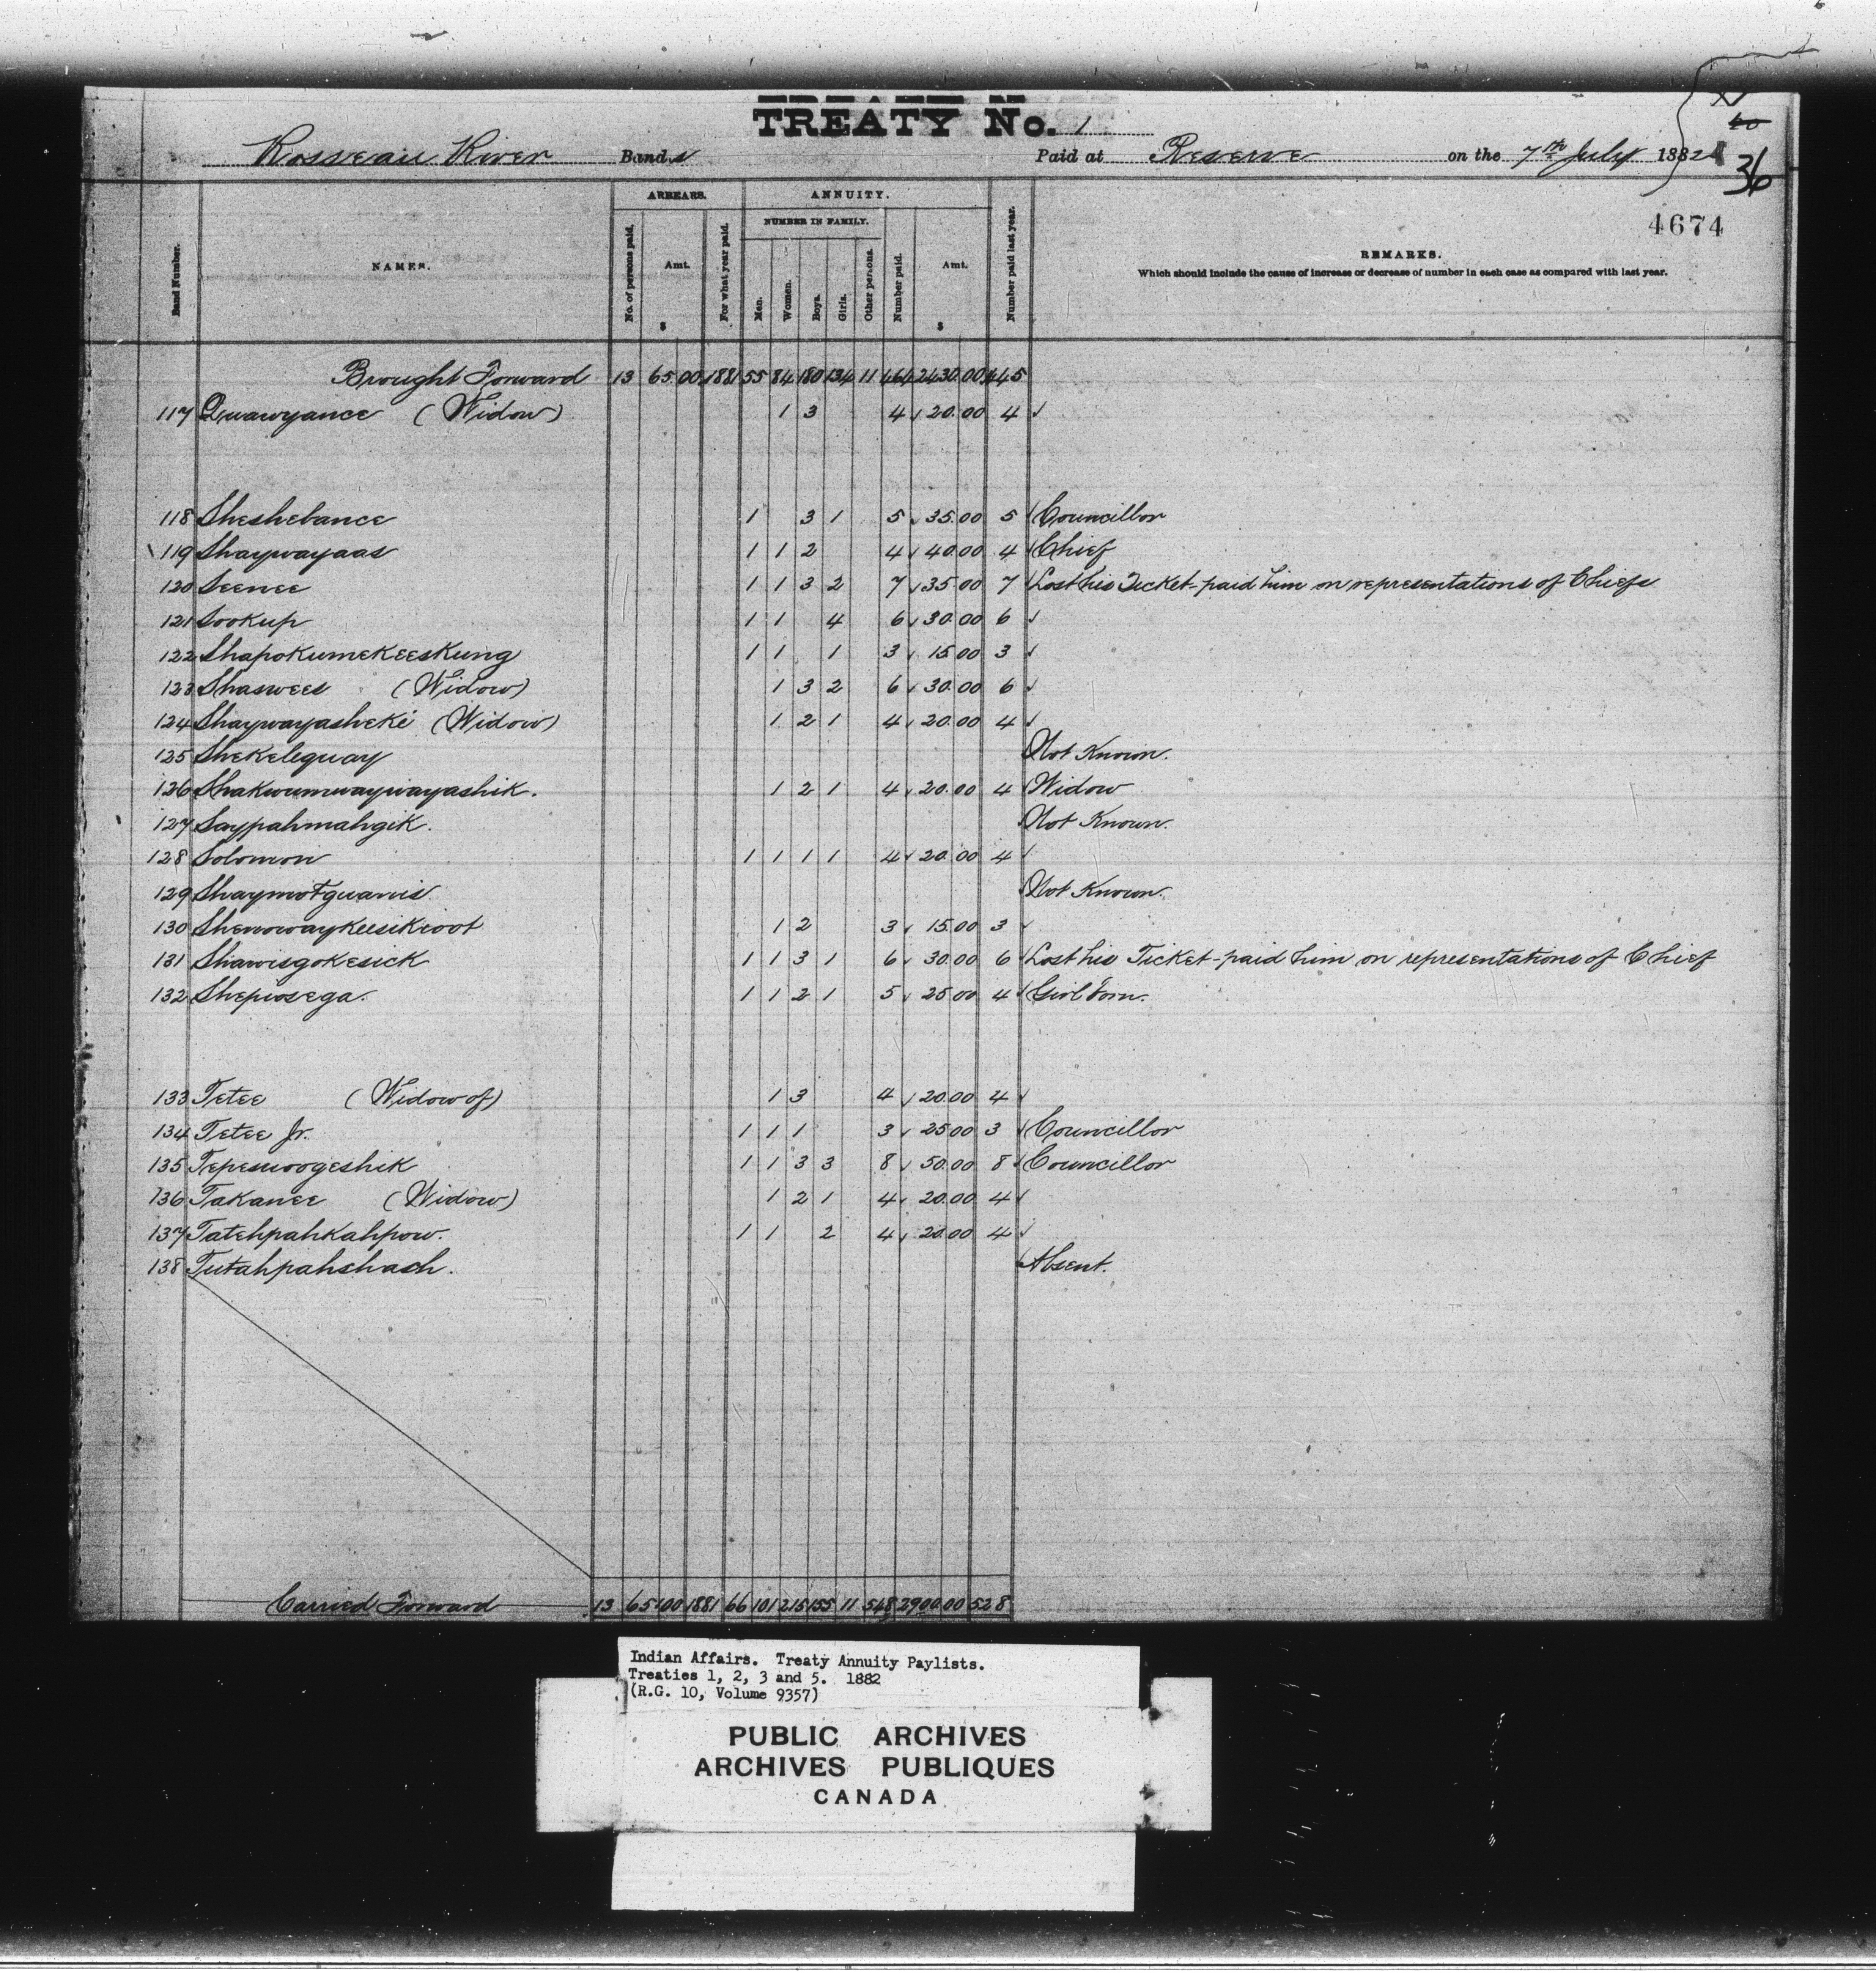 TREATY No. 1
Rosseau River Bands Paid at Reserve on the 7th July 1882
36
4674
Band Number. NAMES. ARREARS. No. of persons paid. Amt. $ For what year paid. ANNUITY. NUMBER IN FAMILY. Men. Women. Boys. Girls. Other persons. Number paid. Amt. $ Number paid last year. REMARKS.
Which should include the cause of increase or decrease of number in each case as compared with last year.
Brought Forward 13 65.00 1881 55 84 180 134 11 464 2430.00 445
117 Quawyance (Widow) 1 3 4 20.00 4
118 Sheshebance 1 3 1 5 35.00 5 Councillor
119 Shaywayaas 1 1 2 4 40.00 4 Chief
120 Seenee 1 1 3 2 7 35.00 7 Lost his Ticket - paid him on representations of Chiefs
121 Sookup 1 1 4 6 30.00 6
122 Shapokumekeeskung 1 1 1 3 15.00 3
123 Shaswees (Widow) 1 3 2 6 30.00 6
124 Shaywayasheke (Widow) 1 2 1 4 20.00 4
125 Shekelequay Not Known.
126 Shakwumwaywayashik. 1 2 1 4 20.00 4 Widow
127 Saypahmahgik. Not Known.
128 Solomon 1 1 1 1 4 20.00 4
129 Shaymotguanis Not Known.
130 Shenowaykeesikwot 1 2 3 15.00 3
131 Shawisgokesick 1 1 3 1 6 30.00 6 Lost his Ticket - paid him on representations of Chief
132 Shepwosega. 1 1 2 1 5 25.00 4 Girl born.
133 Tetee (Widow of) 1 3 4 20.00 4
134 Tetee Jr. 1 1 1 3 25.00 3 Councillor
135 Tepeswoogeshik 1 1 3 3 8 50.00 8 Councillor
136 Takanee (Widow) 1 2 1 4 20.00 4
137 Tatehpahkahpow. 1 1 2 4 20.00 4
138 Tutahpahshash. Absent.
Carried Forward 13 65.00 1881 66 101 215 155 11 548 2900.00 528
Indian Affairs. Treaty Annuity Paylists.
Treaties 1, 2, 3 and 5. 1882
(R.G. 10, Volume 9357)
PUBLIC ARCHIVES
ARCHIVES PUBLIQUES
CANADA